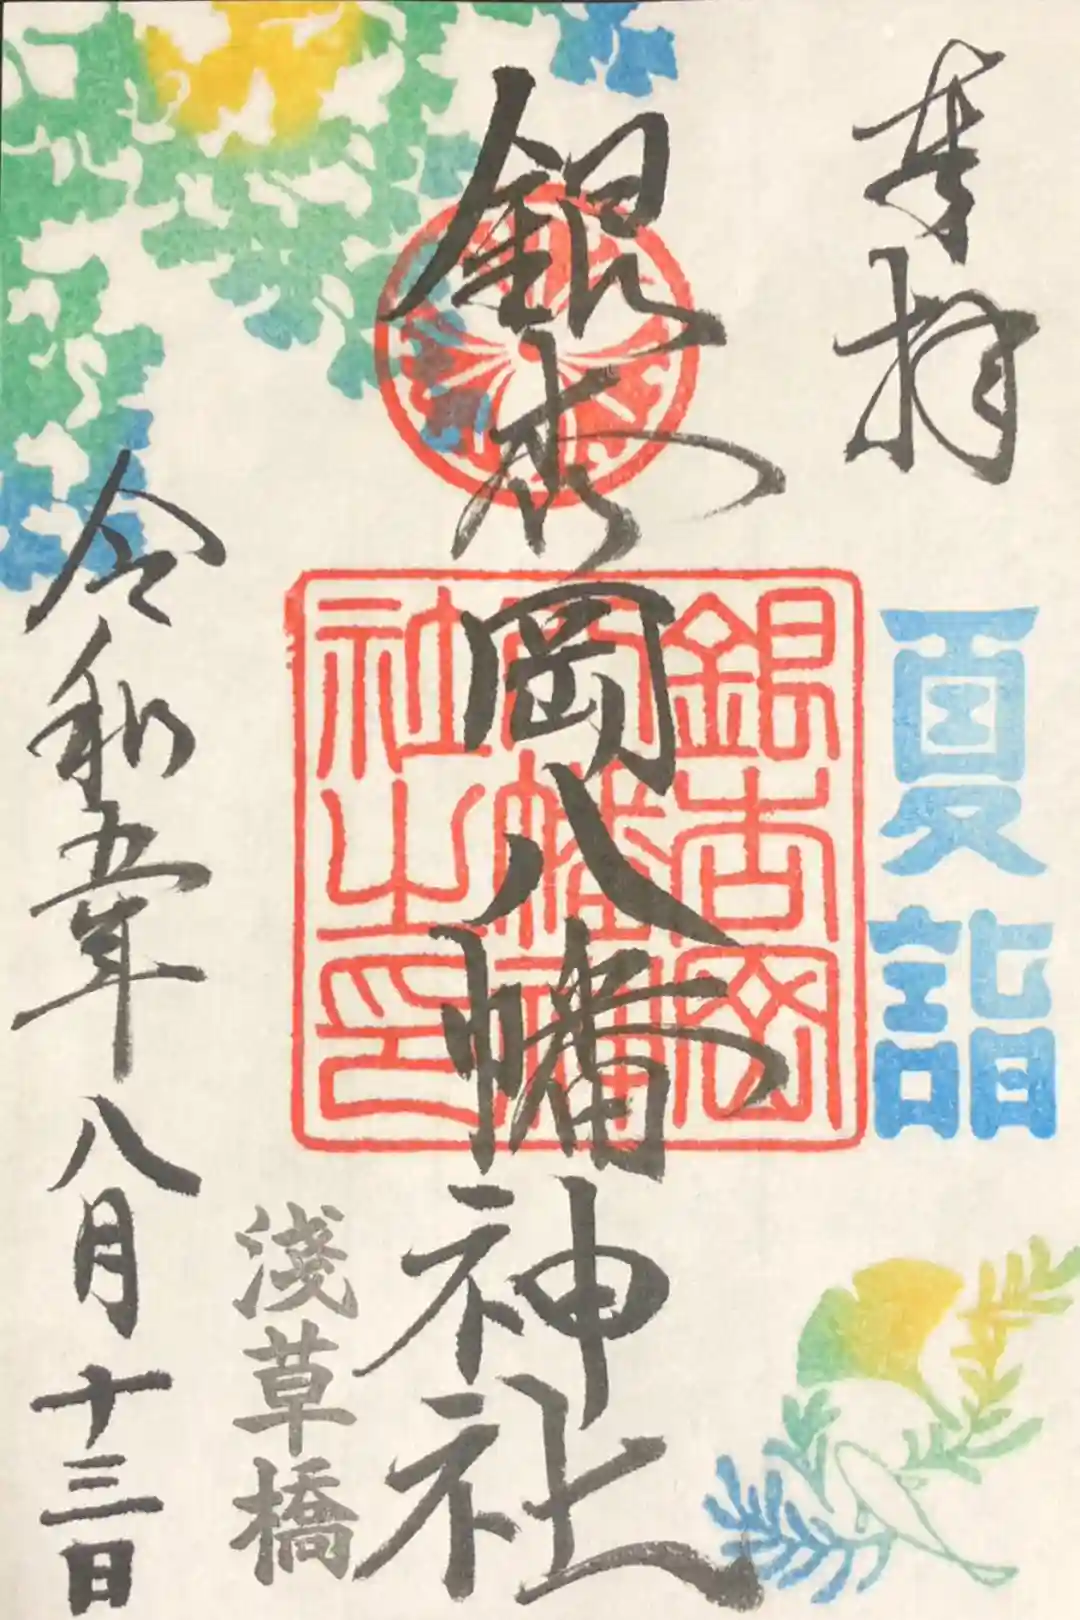 奉拝
夏詣
銀杏岡八幡神社
銀杏岡
八幡神
社之印
淺草橋
令和五年八月十三日